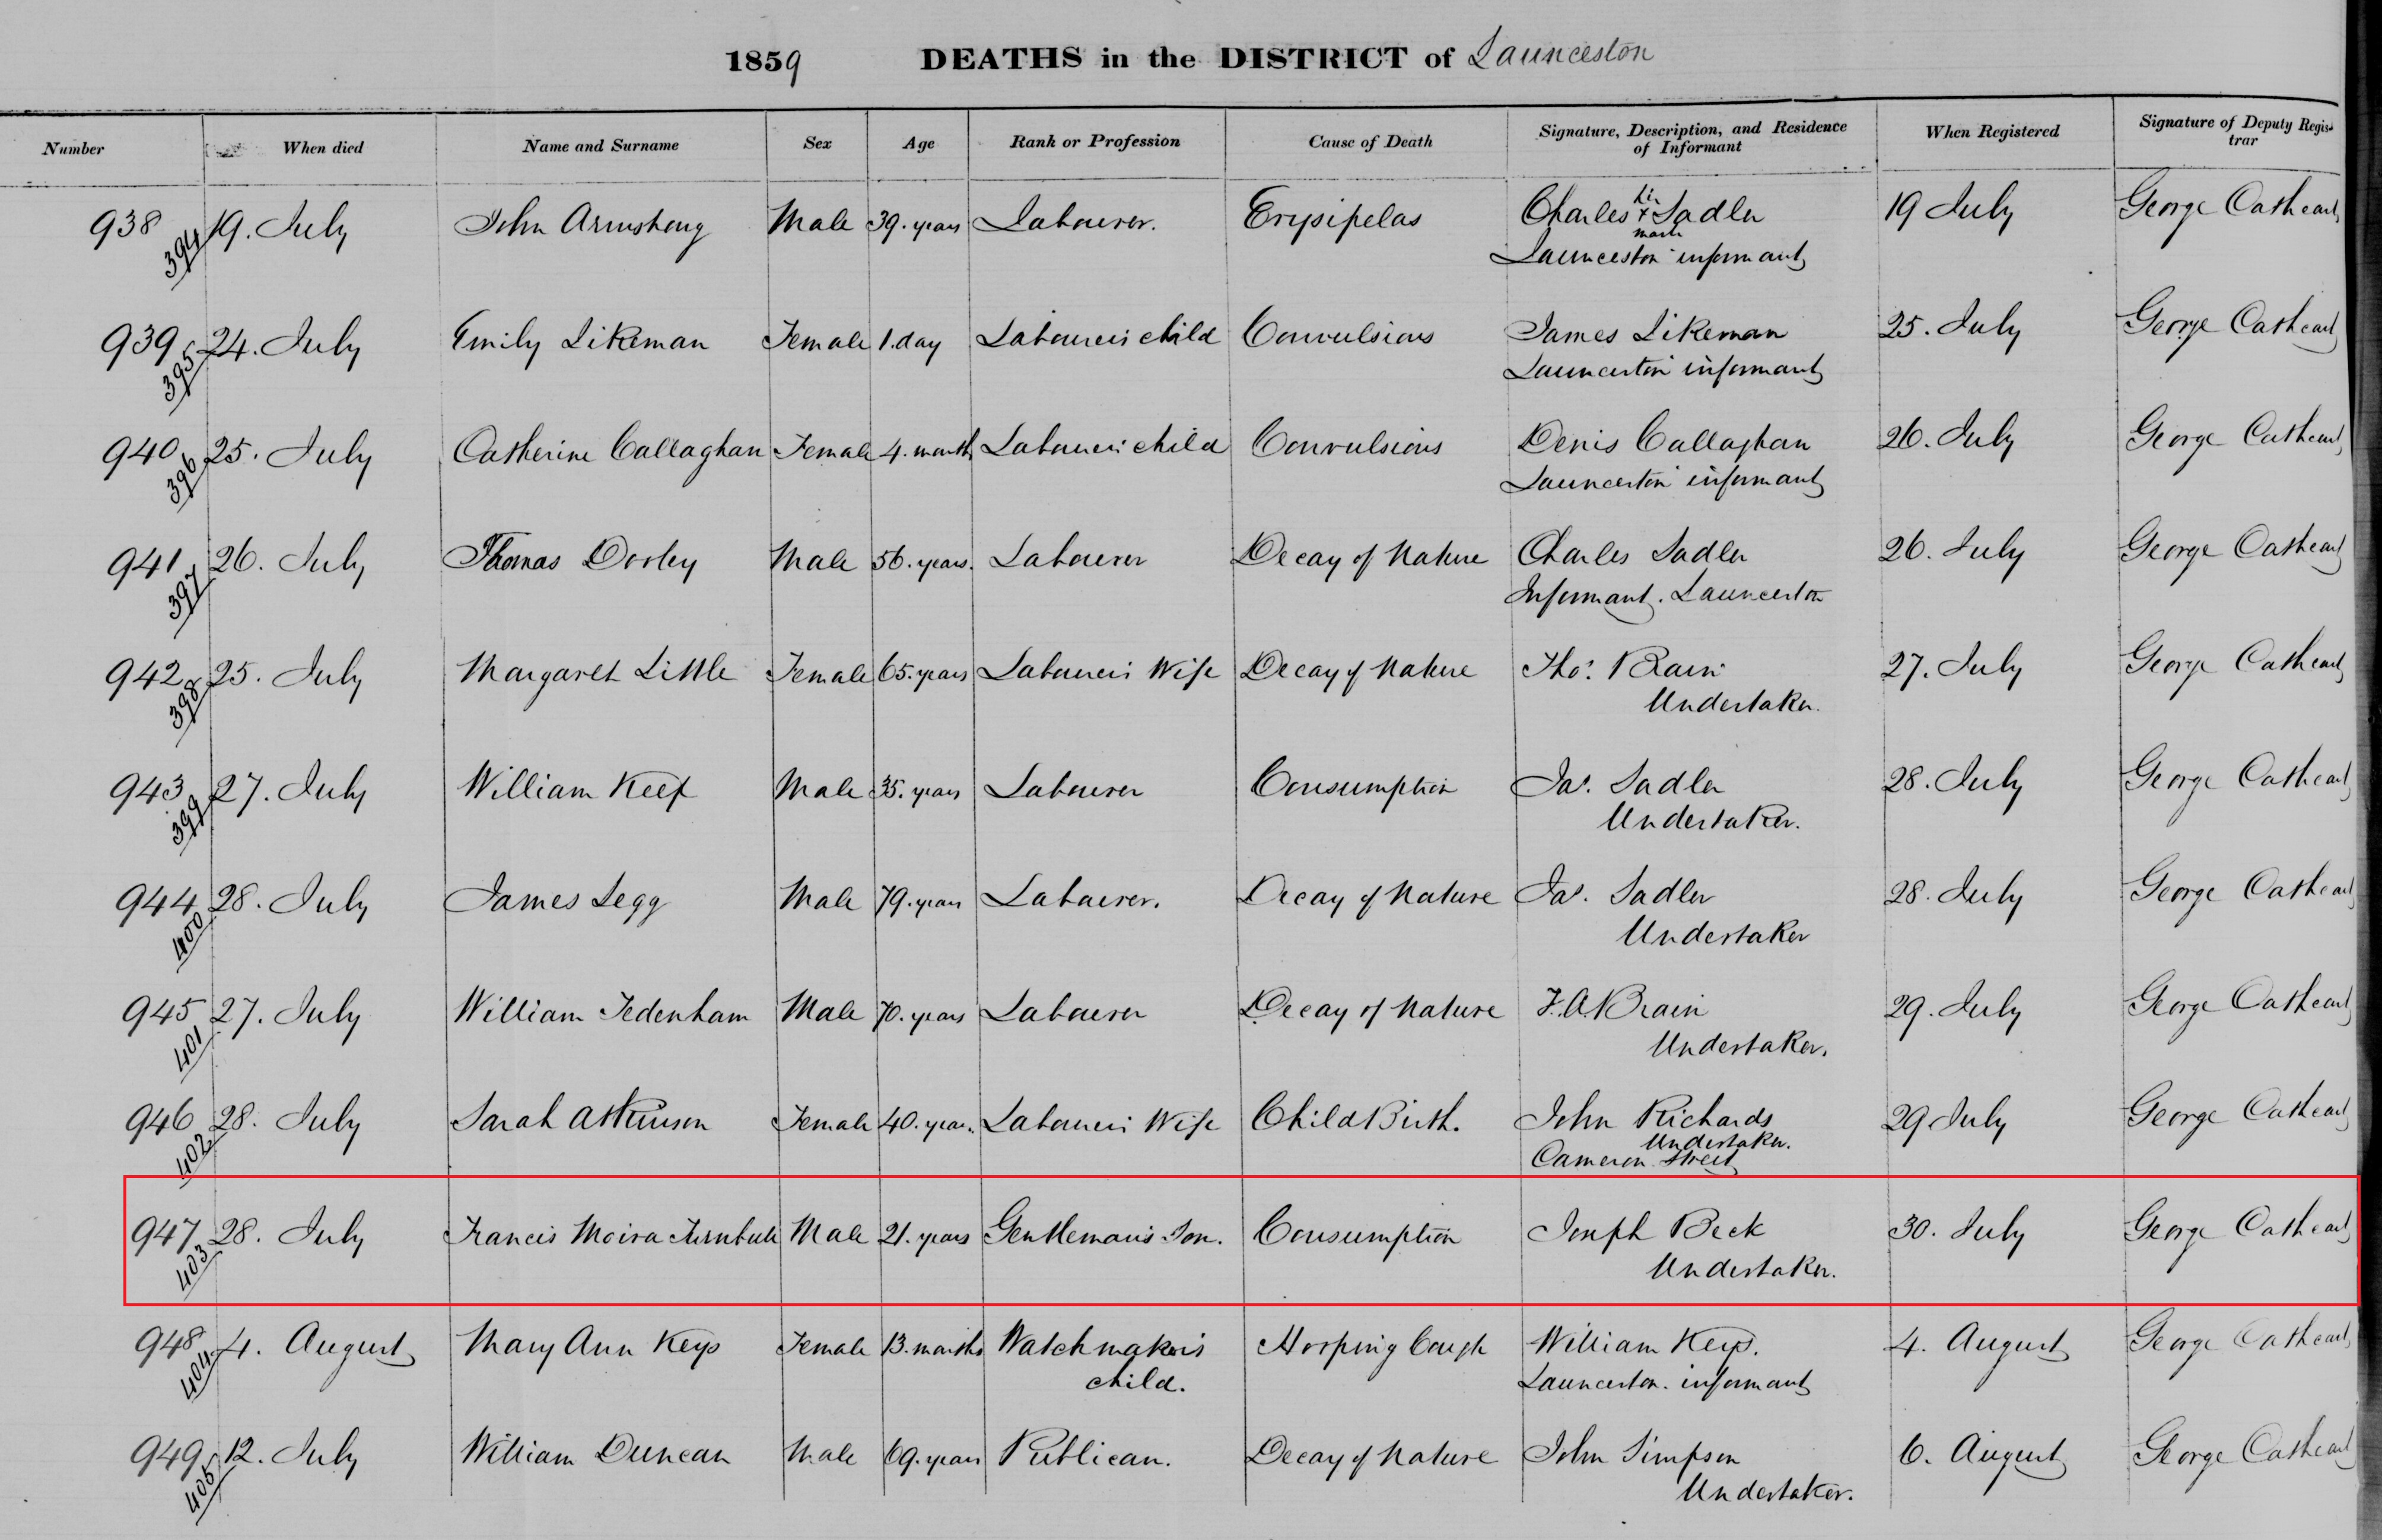 1859 DEATHS in the DISTRICT of Launceston
Number When died Name and Surname Sex Age Rank or Profession Cause of Death Signature, Description, and Residence of Informant When Registered Signature of Deputy Registrar
938 19. July John Armstrong Male 39. years Labourer. Erysipelas Charles his x mark Sadler 19 July George Cathcart
394 Launceston informant
939 24. July Emily Likeman Female 1. day Labourer's child Convulsions James Likeman 25. July George Cathcart
395 Launceston informant
940 25. July Catherine Callaghan Female 4. months Labourer's child Convulsions Denis Callaghan 26. July George Cathcart
396 Launceston informant
941 26. July Thomas Dooley Male 56. years. Labourer Decay of Nature Charles Sadler 26. July George Cathcart
397 Informant. Launceston
942 25. July Margaret Little Female 65. years Labourer's Wife Decay of Nature Thos. Brain 27. July George Cathcart
398 Undertaker.
943 27. July William Keef Male 35. years Labourer Consumption Jas. Sadler 28. July George Cathcart
399 Undertaker.
944 28. July James Legg Male 79. years Labourer. Decay of Nature Jas. Sadler 28. July George Cathcart
400 Undertaker
945 27. July William Tedenham Male 70. years Labourer Decay of Nature F. A. Brain 29. July George Cathcart
401 Undertaker.
946 28. July Sarah Atkinson Female 40. years. Labourer's Wife Child Birth. John Richards 29 July George Cathcart
Undertaker.
402 Cameron Street
947 28. July Francis Moira Turnbull Male 21. years Gentleman's Son. Consumption Joseph Beck 30. July George Cathcart
403 Undertaker.
948 4. August Mary Ann Keys Female 13. months Watchmaker's Hooping Cough William Keys. 4. August George Cathcart
404 child. Launceston. informant
949 12. July William Duncan Male 69. years Publican. Decay of Nature John Simpson 6. August George Cathcart
405 Undertaker.